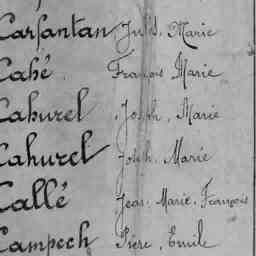 Carfantan Jules, Marie
Cahé François Marie
Cahurel Joseph, Marie
Cahurel Joseph, Marie
Callé Jean, Marie, François
Campech Émile